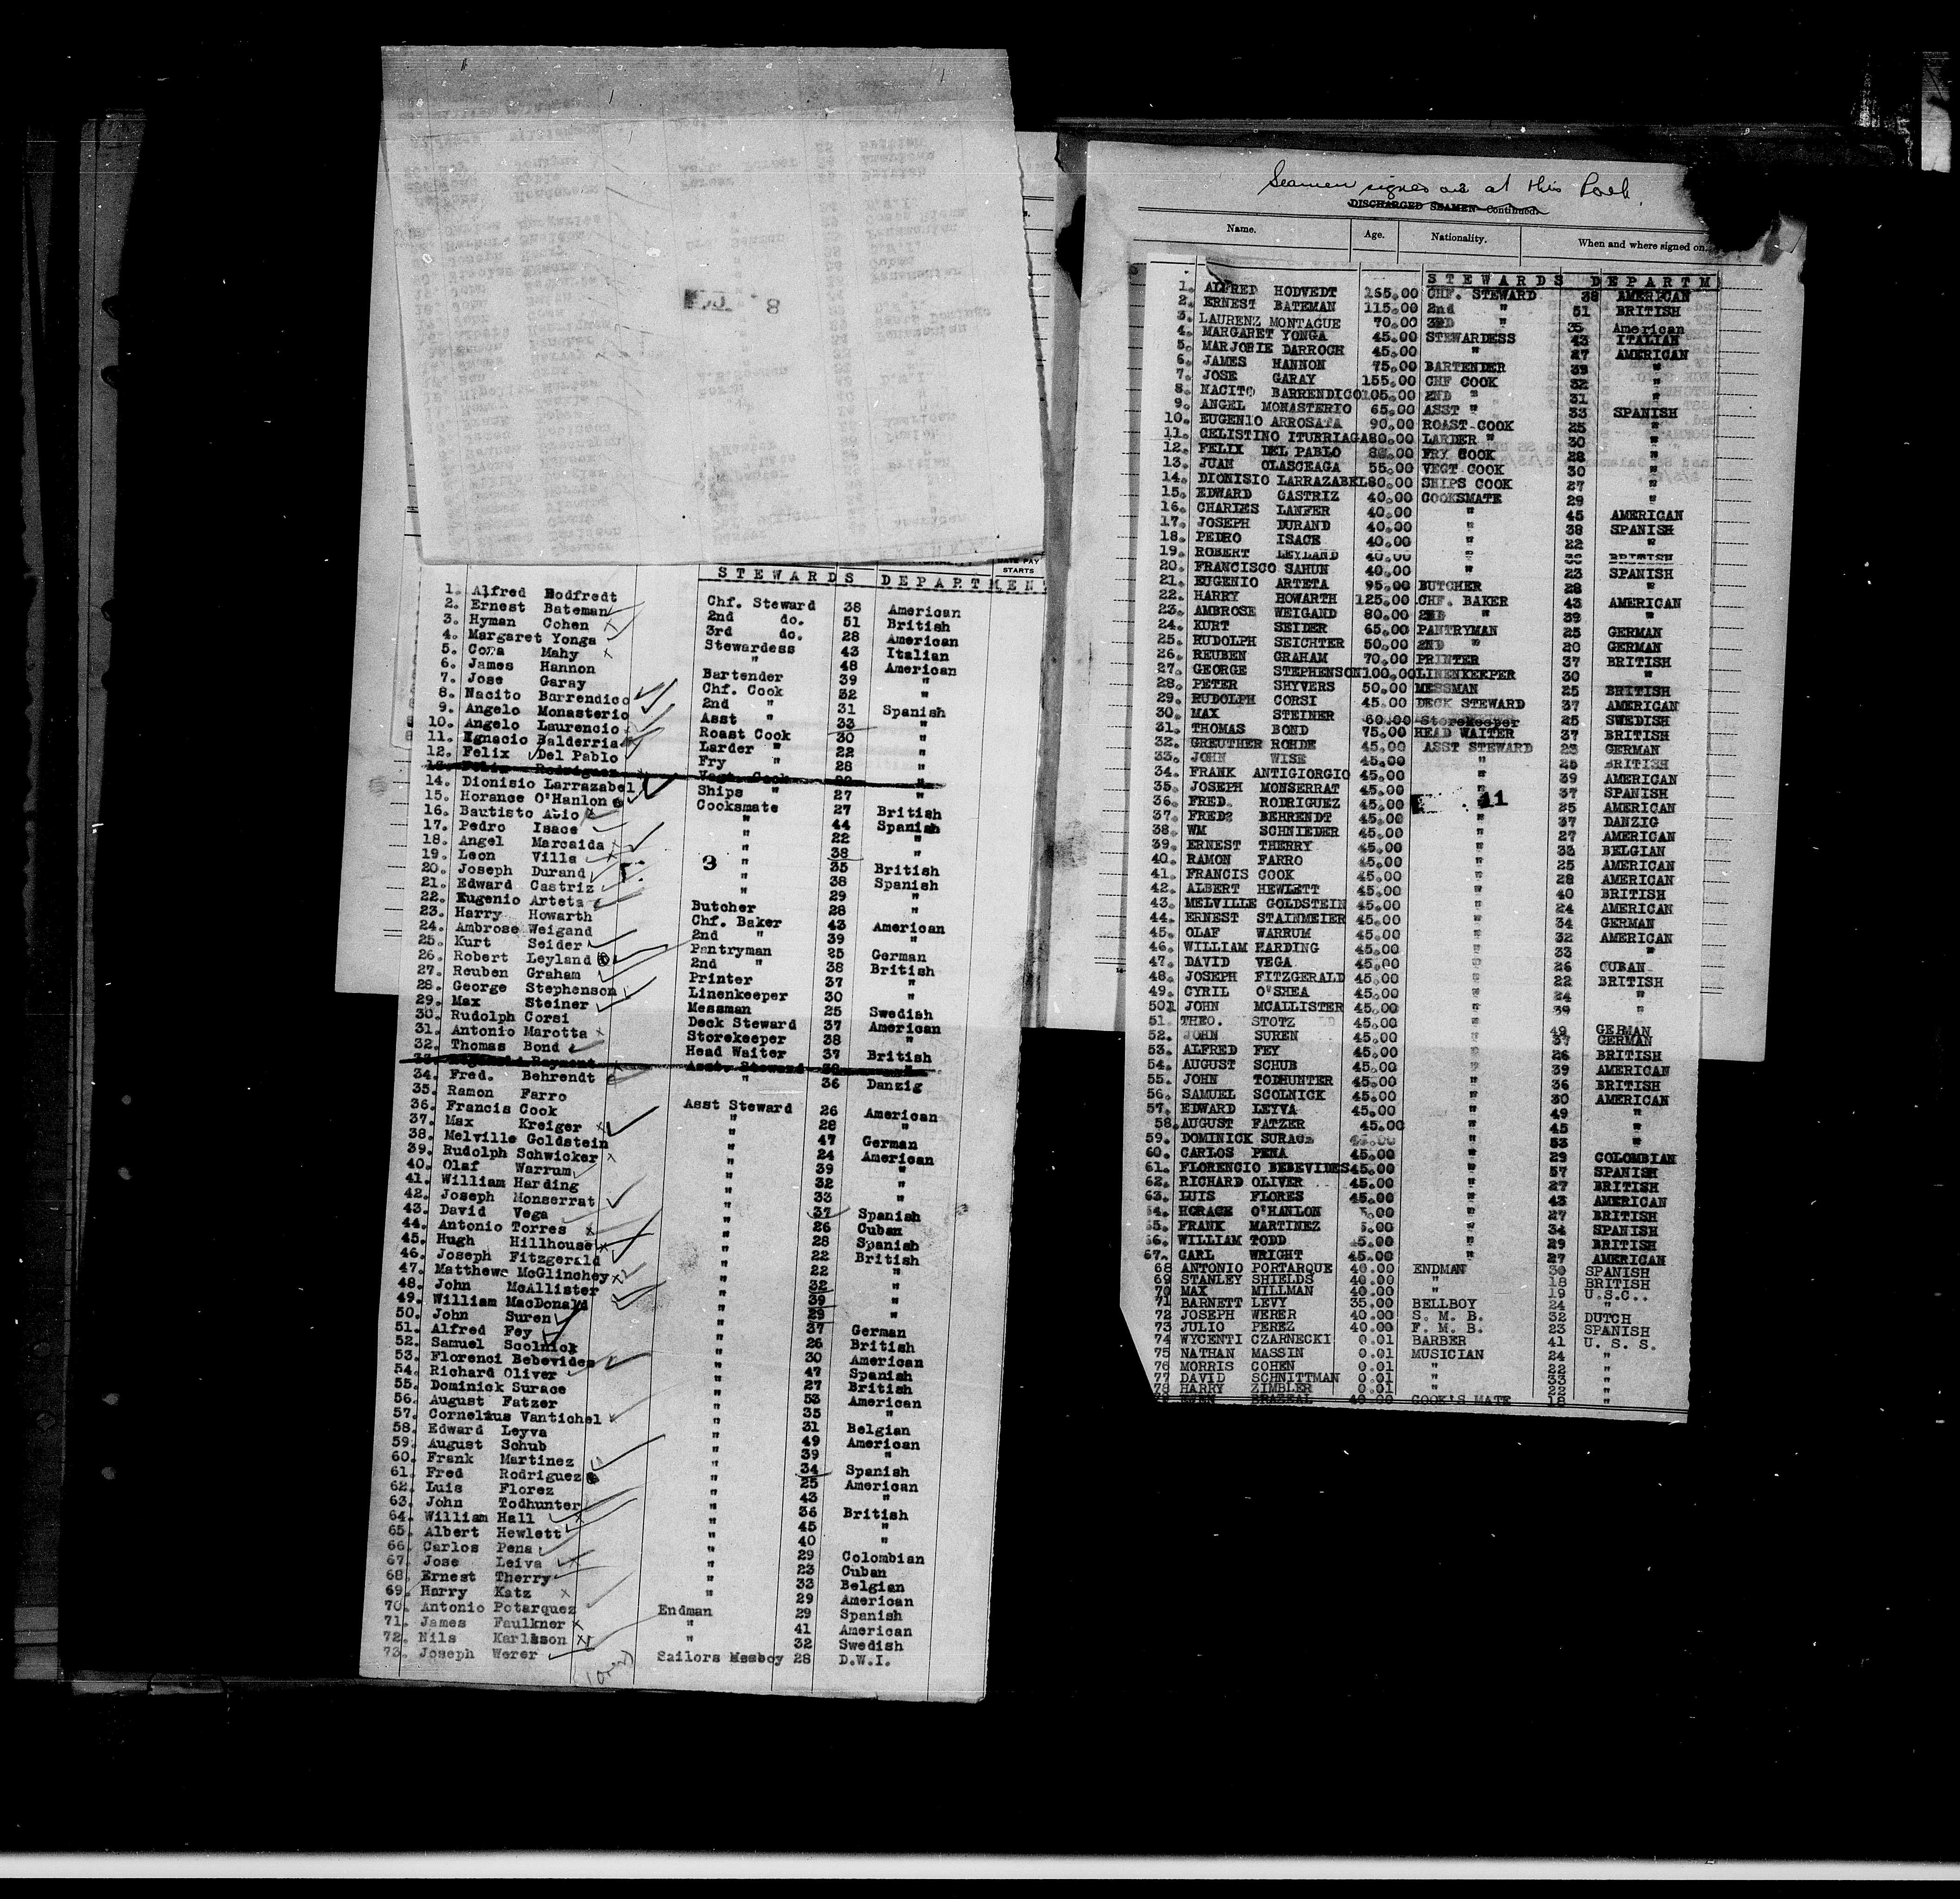 STEWARDS DEPARTMENT
1. Alfred Hodfredt Chf. Steward 38 American
2. Ernest Bateman 2nd do. 51 British
3. Hyman Cohen 3rd do. 28 American
4. Margaret Yonga Stewardess 43 Italian
5. Cora Mahy " 48 American
6. James Hannon Bartender 39 "
7. Jose Garay Chf. Cook 32 "
8. Nacito Barrendico 2nd " 31 Spanish
9. Angelo Monasterio Asst " 33 "
10. Angelo Laurencio Roast Cook 30 "
11. Ignacio Balderria Larder " 22 "
12. Felix Del Pablo Fry " 28 "
13. Felix Rodriguez Vegt. Cook "
14. Dionisio Larrazabel Ships " 27 "
15. Horance O'Hanlon Cooksmate 27 British
16. Bautisto Abio " 44 Spanish
17. Pedro Isace " 22 "
18. Angel Marcaida " 38 "
19. Leon Villa " 35 British
20. Joseph Durand " 38 Spanish
21. Edward Castriz " 29 "
22. Eugenio Arteta Butcher 28 "
23. Harry Howarth Chf. Baker 43 American
24. Ambrose Weigand 2nd " 39 "
25. Kurt Seider Pantryman 25 German
26. Robert Leyland 2nd " 38 British
27. Reuben Graham Printer 37 "
28. George Stephenson Linenkeeper 30 "
29. Max Steiner Messman 25 Swedish
30. Rudolph Corsi Deck Steward 37 American
31. Antonio Marotta Storekeeper 38 "
32. Thomas Bond Head Waiter 37 British
33. Rayment Asst. Steward "
34. Fred. Behrendt " 36 Danzig
35. Ramon Farro Asst Steward 26 American
36. Francis Cook " 28 "
37. Max Kreiger " 47 German
38. Melville Goldstein " 24 American
39. Rudolph Schwicker " 39 "
40. Olaf Warrum " 32 "
41. William Harding " 33 "
42. Joseph Monserrat " 37 Spanish
43. David Vega " 26 Cuban
44. Antonio Torres " 28 Spanish
45. Hugh Hillhouse " 22 British
46. Joseph Fitzgerald " 22 "
47. Matthews McGlinchey " 32 "
48. John McAllister " 39 "
49. William MacDonald " 29 "
50. John Suren " 37 German
51. Alfred Fey " 26 British
52. Samuel Scolnick " 30 American
53. Florenci Bebevides " 47 Spanish
54. Richard Oliver " 27 British
55. Dominick Surace " 53 American
56. August Fatzer " 35 "
57. Cornelius Vantichel " 31 Belgian
58. Edward Leyva " 49 American
59. August Schub " 39 "
60. Frank Martinez " 34 Spanish
61. Fred Rodriguez " 25 American
62. Luis Florez " 43 "
63. John Todhunter " 36 British
64. William Hall " 45 "
65. Albert Hewlett " 40 "
66. Carlos Pena " 29 Colombian
67. Jose Leiva " 23 Cuban
68. Ernest Therry " 33 Belgian
69. Harry Katz " 29 American
70. Antonio Potarquez Endman 29 Spanish
71. James Faulkner " 41 American
72. Nils Karlsson " 32 Swedish
73. Joseph Werer Sailors Messboy 28 D.W.I.
Seamen signed on at this Port.
DISCHARGED SEAMEN—Continued.
Name. Age. Nationality. When and where signed on.
STEWARDS DEPARTM
1. ALFRED HODVEDT 165.00 CHF. STEWARD 38 AMERICAN
2. ERNEST BATEMAN 115.00 2nd " 51 BRITISH
3. LAURENZ MONTAGUE 70.00 3RD " 35 American
4. MARGARET YONGA 45.00 STEWARDESS 43 ITALIAN
5. MARJORIE DARROCH 45.00 " 27 AMERICAN
6. JAMES HANNON 75.00 BARTENDER 39 "
7. JOSE GARAY 155.00 CHF COOK 32 "
8. NACITO BARRENDICO 105.00 2ND " 31 "
9. ANGEL MONASTERIO 65.00 ASST " 33 SPANISH
10. EUGENIO ARROSATA 90.00 ROAST COOK 25 "
11. CELISTINO ITURRIAGA 80.00 LARDER " 30 "
12. FELIX DEL PABLO FRY COOK 28 "
13. JUAN OLASCEAGA 55.00 VEGT COOK 30 "
14. DIONISIO LARRAZABEL 80.00 SHIPS COOK 27 "
15. EDWARD CASTRIZ 40.00 COOKSMATE 29 "
16. CHARLES LANFER 40.00 " 45 AMERICAN
17. JOSEPH DURAND 40.00 " 38 SPANISH
18. PEDRO ISACE 40.00 " 22 "
19. ROBERT LEYLAND 40.00 " BRITISH
20. FRANCISCO SAHUN 40.00 " 23 SPANISH
21. EUGENIO ARTETA 95.00 BUTCHER 28 "
22. HARRY HOWARTH 125.00 CHF. BAKER 43 AMERICAN
23. AMBROSE WEIGAND 80.00 2ND " 39 "
24. KURT SEIDER 65.00 PANTRYMAN 25 GERMAN
25. RUDOLPH SEICHTER 50.00 2ND " 20 GERMAN
26. REUBEN GRAHAM 70.00 PRINTER 37 BRITISH
27. GEORGE STEPHENSON 100.00 LINENKEEPER 30 "
28. PETER SHYVERS 50.00 MESSMAN 25 BRITISH
29. RUDOLPH CORSI 45.00 DECK STEWARD 37 AMERICAN
30. MAX STEINER 60.00 Storekeeper 25 SWEDISH
31. THOMAS BOND 75.00 HEAD WAITER 37 BRITISH
32. GREUTHER ROHDE 45.00 ASST STEWARD 23 GERMAN
33. JOHN WISE 45.00 " 25 BRITISH
34. FRANK ANTIGIORGIO 45.00 " 39 AMERICAN
35. JOSEPH MONSERRAT 45.00 " 37 SPANISH
36. FRED. RODRIGUEZ 45.00 11 25 AMERICAN
37. FRED. BEHRENDT 45.00 " 37 DANZIG
38. WM SCHNIEDER 45.00 " 27 AMERICAN
39. ERNEST THERRY 45.00 " 33 BELGIAN
40. RAMON FARRO 45.00 " 25 AMERICAN
41. FRANCIS COOK 45.00 " 28 AMERICAN
42. ALBERT HEWLETT 45.00 " 40 BRITISH
43. MELVILLE GOLDSTEIN 45.00 " 24 AMERICAN
44. ERNEST STAINMEIER 45.00 " 34 GERMAN
45. OLAF WARRUM 45.00 " 32 AMERICAN
46. WILLIAM HARDING 45.00 " 33 "
47. DAVID VEGA 45.00 " 26 CUBAN
48. JOSEPH FITZGERALD 45.00 " 22 BRITISH
49. CYRIL O'SHEA 45.00 " 24 "
50. JOHN MCALLISTER 45.00 " 39 "
51. THEO. STOTZ 45.00 " 49 GERMAN
52. JOHN SUREN 45.00 " 37 GERMAN
53. ALFRED FEY 45.00 " 26 BRITISH
54. AUGUST SCHUB 45.00 " 39 AMERICAN
55. JOHN TODHUNTER 45.00 " 36 BRITISH
56. SAMUEL SCOLNICK 45.00 " 30 AMERICAN
57. EDWARD LEYVA 45.00 " 49 "
58. AUGUST FATZER 45.00 " 45 "
59. DOMINICK SURACE 45.00 " 53 "
60. CARLOS PENA 45.00 " 29 COLOMBIAN
61. FLORENCIO BEBEVIDES 45.00 " 57 SPANISH
62. RICHARD OLIVER 45.00 " 27 BRITISH
63. LUIS FLORES 45.00 " 43 AMERICAN
64. HORACE O'HANLON 5.00 " 27 BRITISH
65. FRANK MARTINEZ 5.00 " 34 SPANISH
66. WILLIAM TODD 45.00 " 29 BRITISH
67. CARL WRIGHT 45.00 " 27 AMERICAN
68 ANTONIO PORTARQUE 40.00 ENDMAN 30 SPANISH
69 STANLEY SHIELDS 40.00 " 18 BRITISH
70 MAX MILLMAN 40.00 " 19 U.S.C..
71 BARNETT LEVY 35.00 BELLBOY 24 "
72 JOSEPH WERER 40.00 S. M. B. 32 DUTCH
73 JULIO PEREZ 40.00 F. M. B. 23 SPANISH
74 WYCENTI CZARNECKI 0.01 BARBER 41 U. S. S.
75 NATHAN MASSIN 0.01 MUSICIAN 24 "
76 MORRIS COHEN 0.01 " 22 "
77 DAVID SCHNITTMAN 0.01 " 33 "
78 HARRY ZIMBLER 0.01 " 22 "
BRAZEAL 40.00 COOK'S MATE 18 "